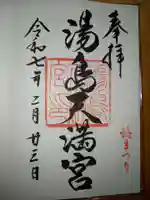 奉拝
湯島天満宮
令和七年二月廿三日
梅まつり